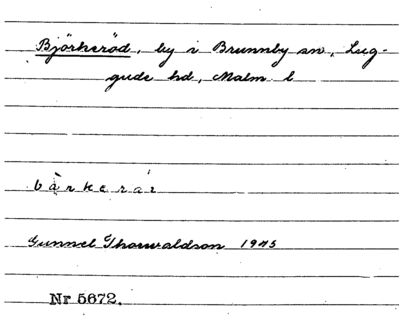 Björkeröd, by i Brunnby sn, Lug-
gude hd, Malm l
bàrkerár
Gunnel Thorwaldson 1975
Nr 5672.